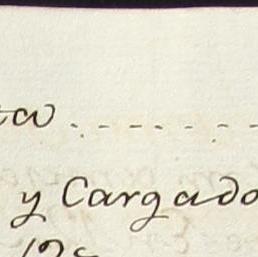 ta . - - - - - -
y Cargado